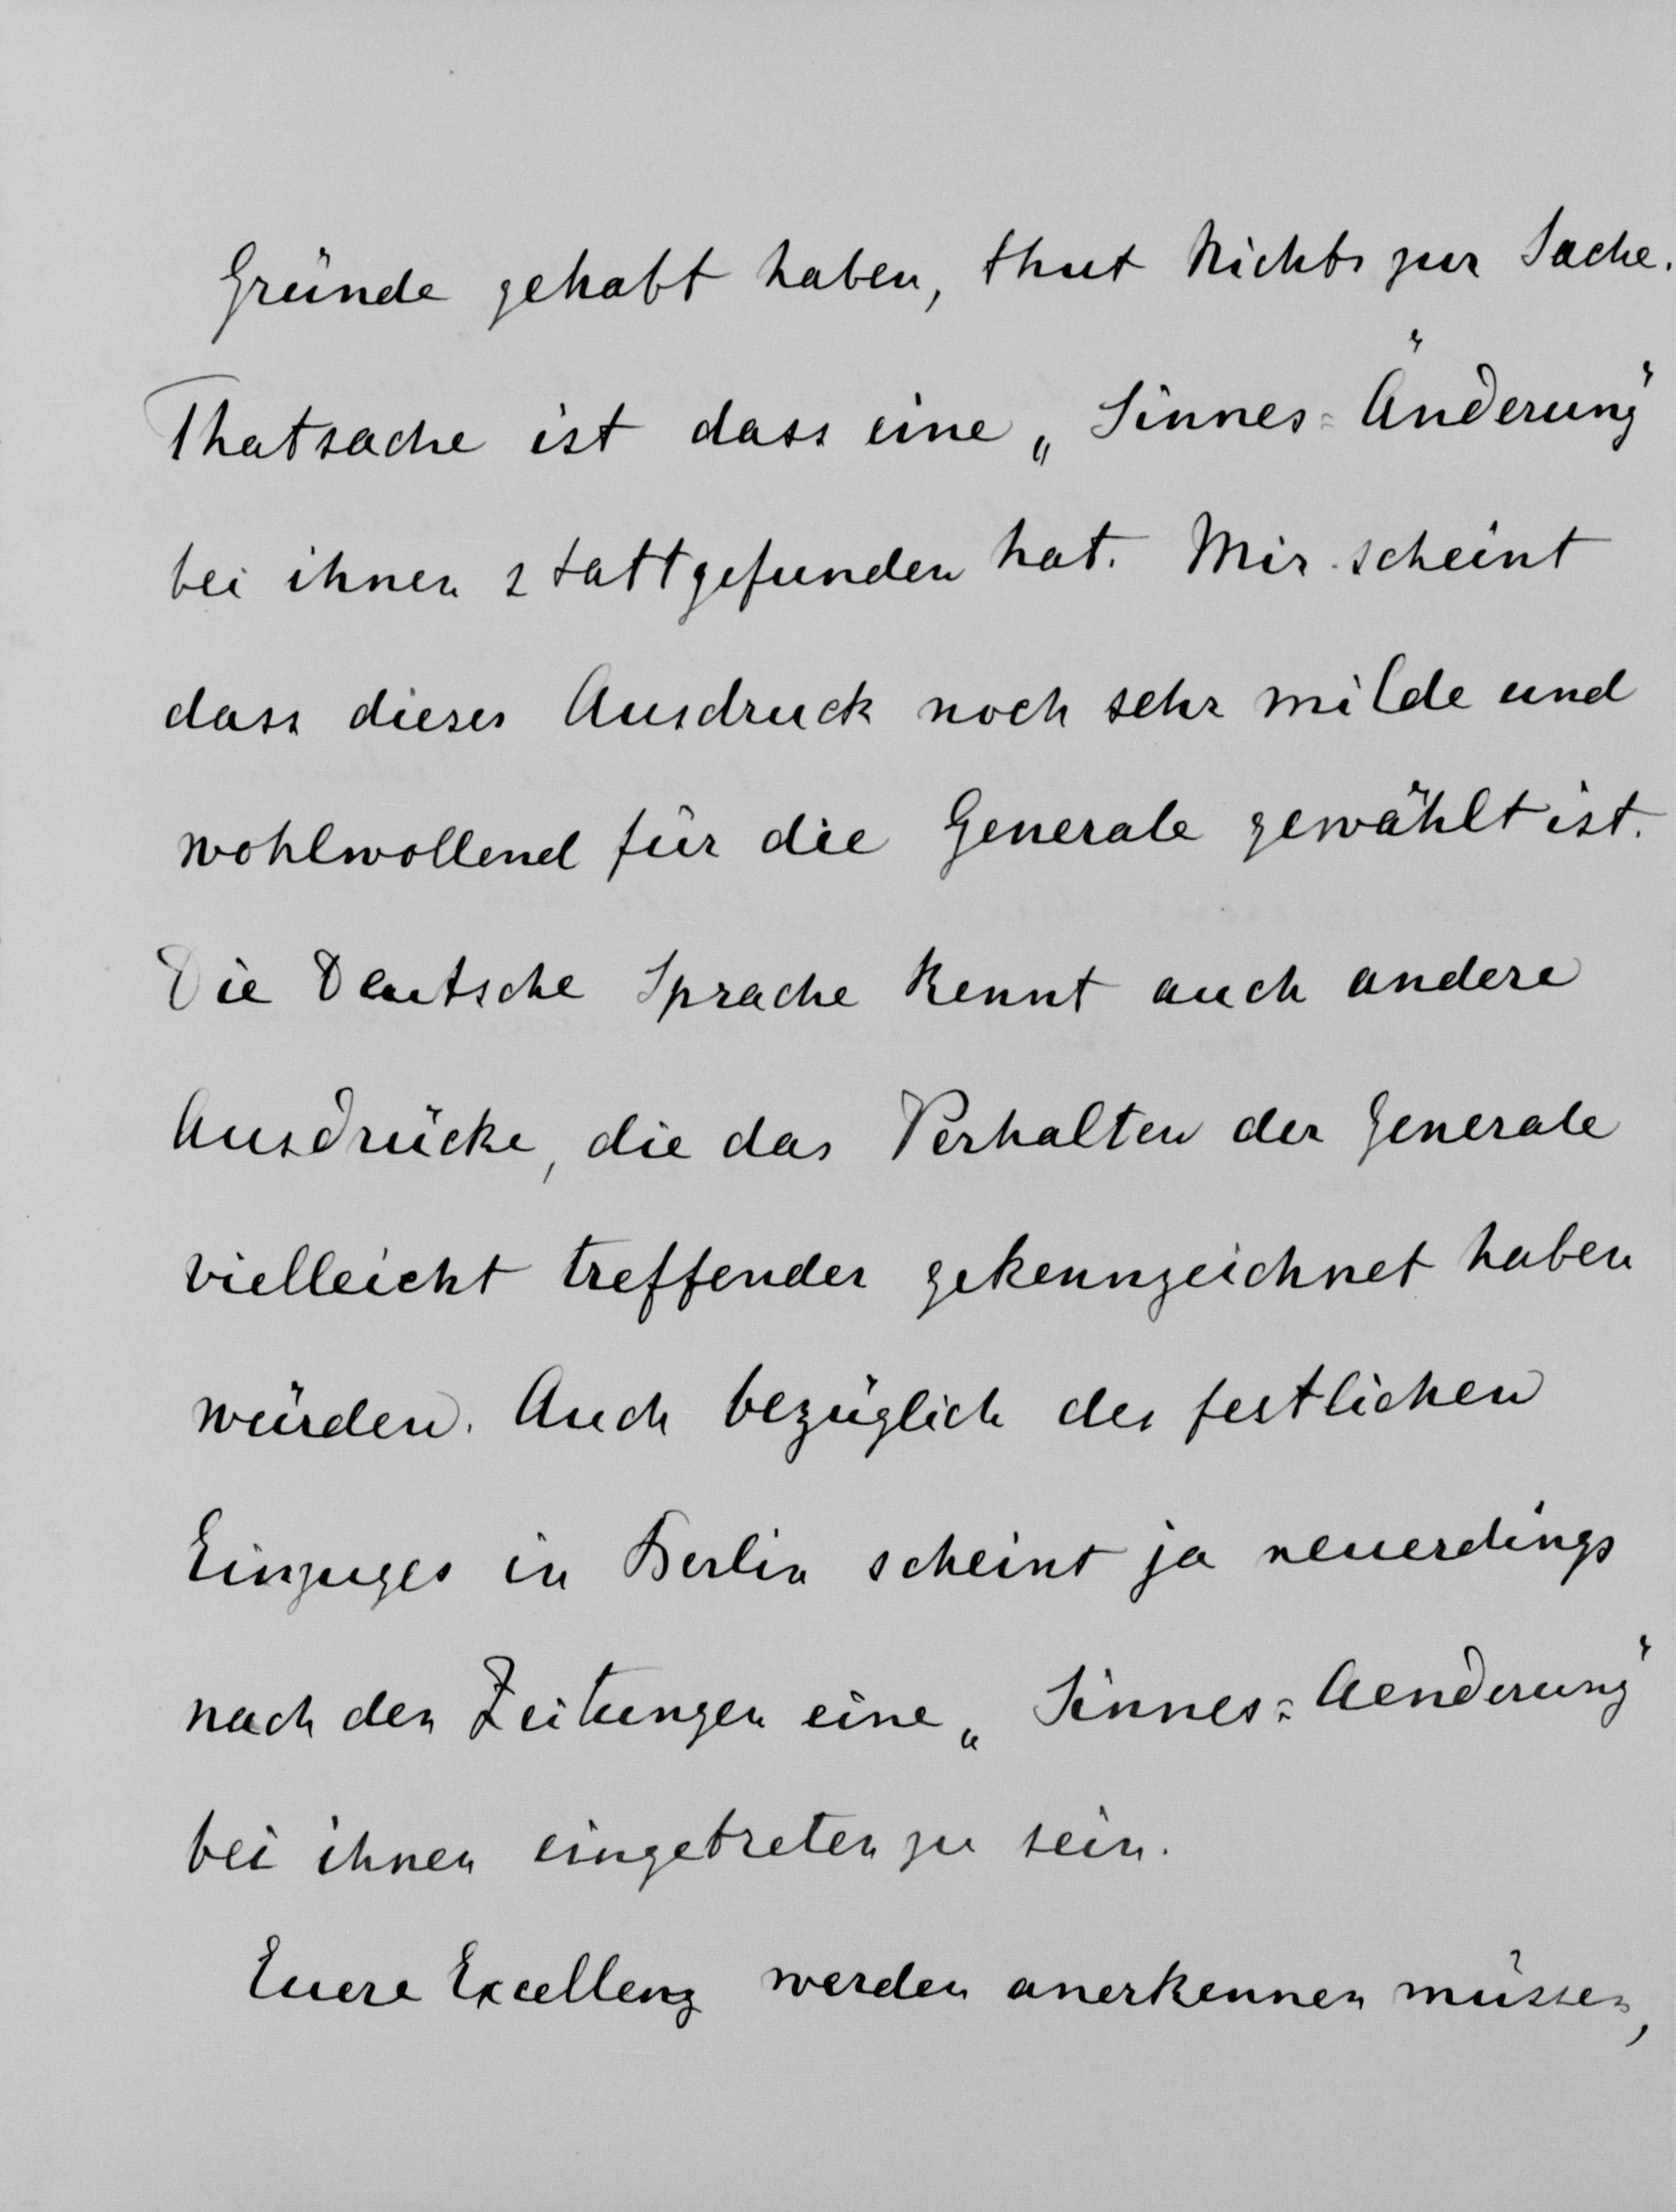 Gründe gehabt haben, thut Nichts zur Sache.
Thatsache ist dass eine „Sinnes=Änderung"
bei ihnen stattgefunden hat. Mir scheint
dass dieser Ausdruck noch sehr milde und
wohlwollend für die Generale gewählt ist.
Die Deutsche Sprache kennt auch andere
Ausdrücke, die das Verhalten der Generale
vielleicht treffender gekennzeichnet haben
würden. Auch bezüglich des festlichen
Einzuges in Berlin scheint ja neuerdings
nach den Zeitungen eine „Sinnes=Aenderung"
bei ihnen eingetreten zu sein.
Euere Excellenz werden anerkennen müssen,